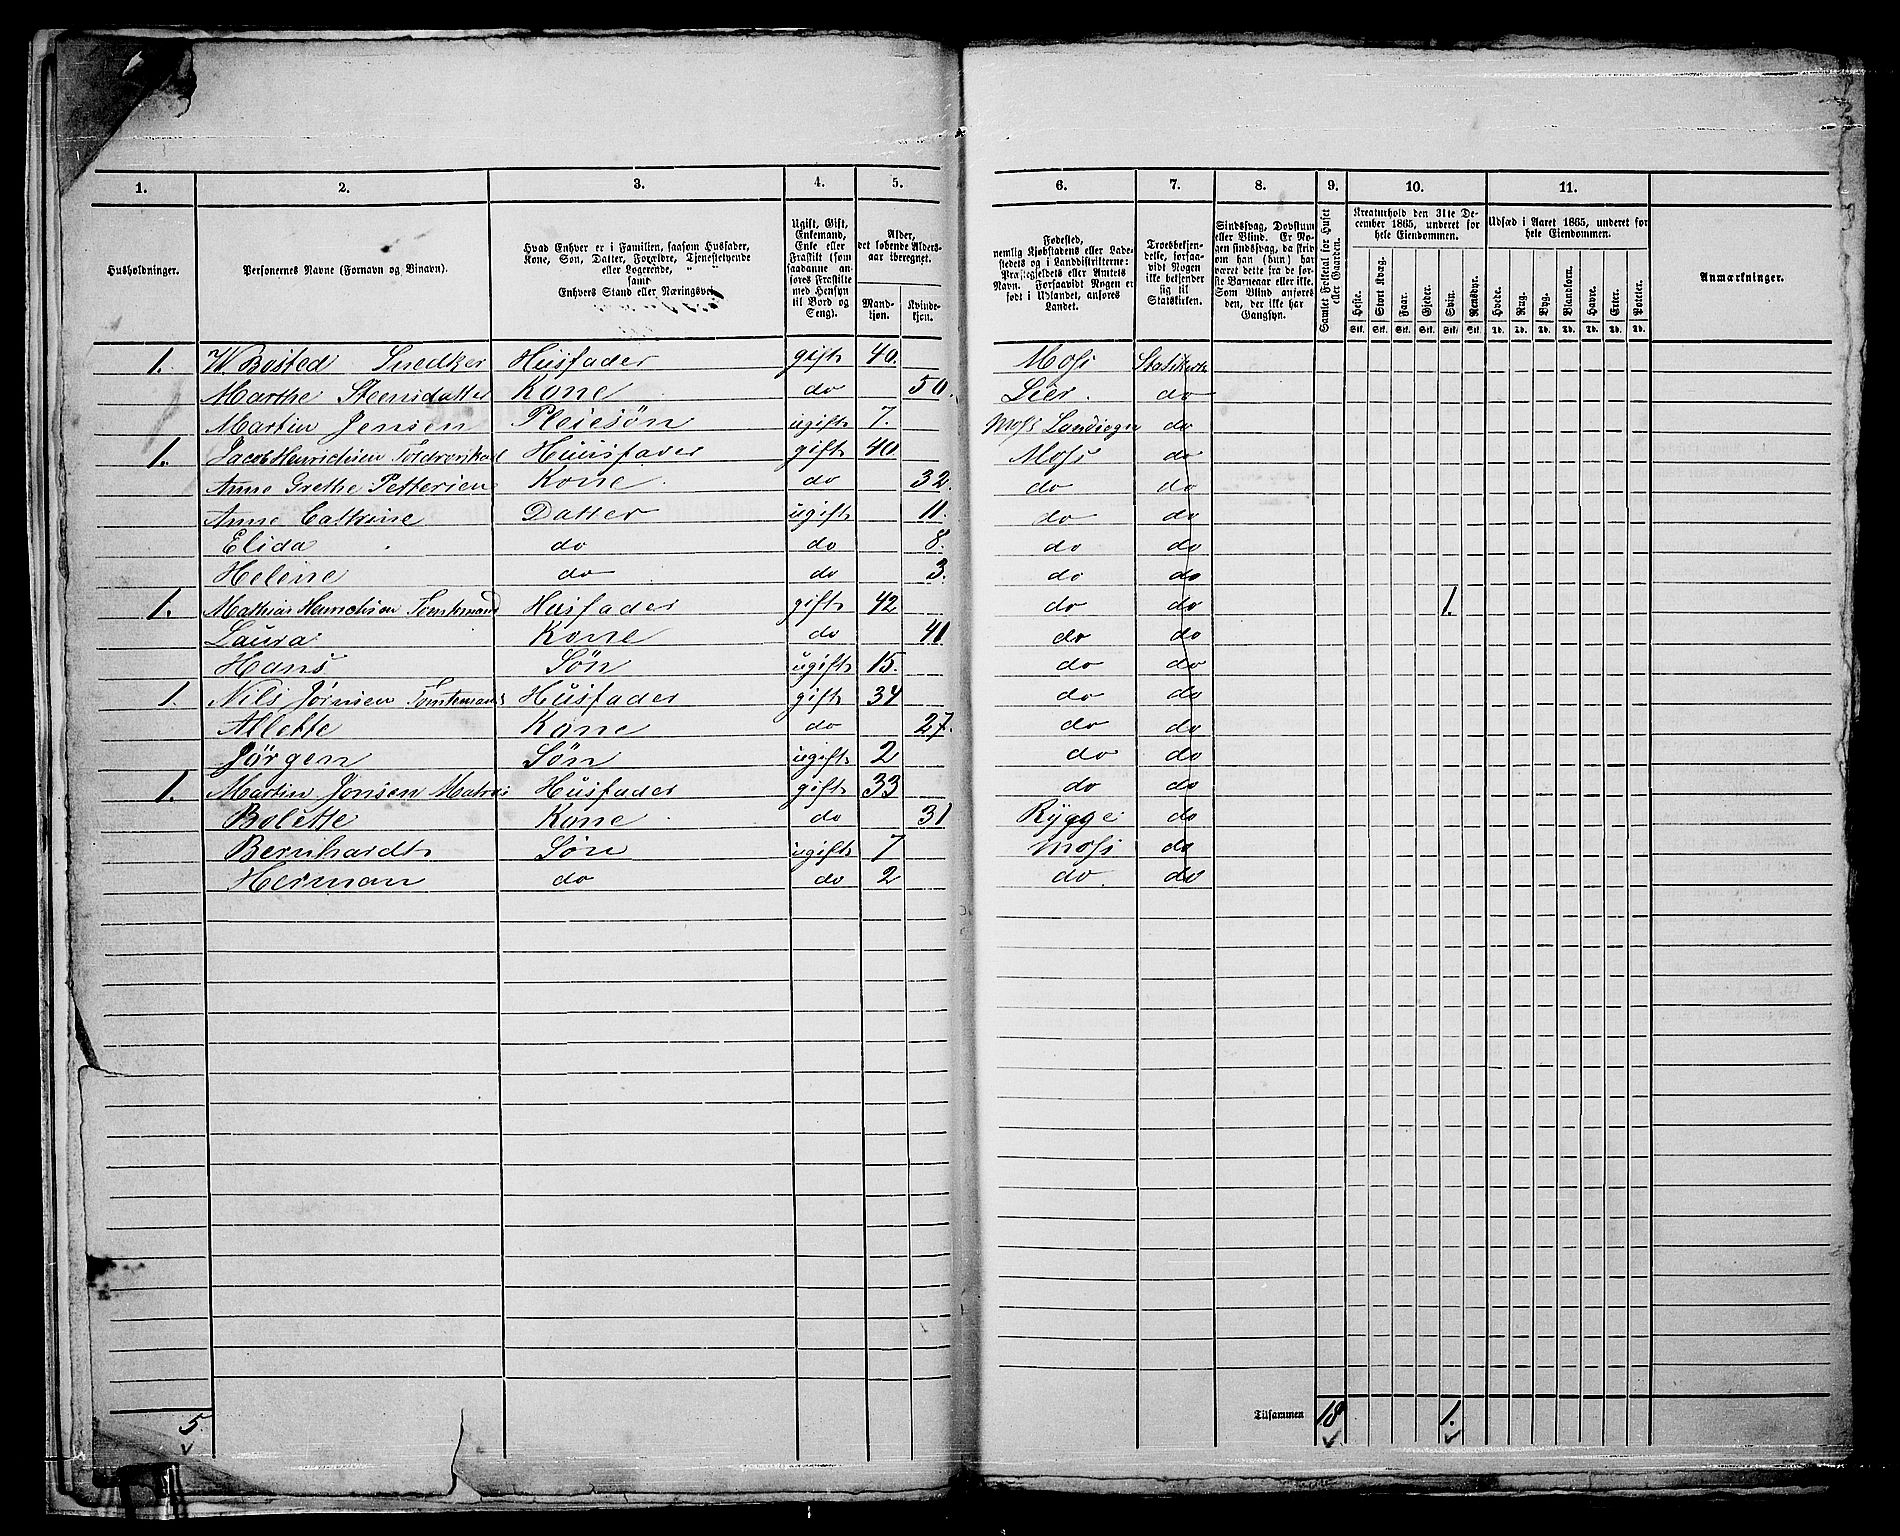 1. 2. 3. 4. 5. 6. 7. 8. 9. 10. 11.
Husholdninger.
Personernes Navne (Fornavn og Binavn).
Hvad Enhver er i Familien, saasom Husfader,
Kone, Søn, Datter, Forældre, Tjenestetyende
eller Logerende,
samt
Enhvers Stand eller Næringsvei.
Ugift, Gift,
Enkemand,
Enke eller
Fraskilt (som
saadanne an-
føres Fraskilte
med Hensyn
til Bord og
Seng).
Alder,
det løbende Alders-
aar iberegnet.
Mand-
kjøn.
Kvinde-
kjøn.
Fødested,
nemlig Kjøbstadens eller Lade-
stedets og i Landdistrikterne:
Præstegjeldets eller Amtets
Navn. Forsaavidt Nogen er
født i Udlandet, anføres
Landet.
Troesbekjen-
delse, forsaa-
vidt Nogen
ikke bekjender
sig til
Statskirken.
Sindssvag, Døvstum
eller Blind. Er No-
gen sindssvag, da skriv
om han (hun) har
været dette fra de før-
ste Barneaar eller ikke.
Som Blind anføres
den, der ikke har
Gangsyn.
Samlet Folketal for Huset
eller Gaarden.
Kreaturhold den 31te De-
cember 1865, underet for
hele Eiendommen.
Heste. Stort Kvæg. Faar. Gjeder. Sviin. Rensdyr.
Stk. Stk. Stk. Stk. Stk. Stk.
Udsæd i Aaret 1865, underet for
hele Eiendommen.
Hvede. Rug. Byg. Blandkorn. Havre. Erter. Poteter.
Td. Td. Td. Td. Td. Td. Td.
Anmærkninger.
1. W Bosted Snedker Husfader gift 40. Moss Statskirke
Marthe Steensdatter Kone do 50. Lier. do
Martin Jensen Pleiesøn ugift 7. Moss do
1. Jacob Henrichsen Husfader gift 40. Moss do
Anne Grethe Pettersen Kone do 32. do do
Anne Cathrine Datter ugift 11. do do
Elida do do 8. do do
Helene do do 3. do do
1. Mathias Henrichsen Tomtemand Husfader gift 42 do do 1.
Laura Kone do 41 do do
Hans Søn ugift 15. do do
1. Nils Jørnsen Tomtemand Husfader gift 34 do do
Allette Kone do 27. do do
Jørgen Søn ugift 2 do do
1. Martin Jonsen Matros Husfader gift 33 do do
Bolette Kone do 31 Rygge do
Bernhardt Søn ugift 7 Moss do
Herman do do 2 do do
5. Tilsammen 18 1.